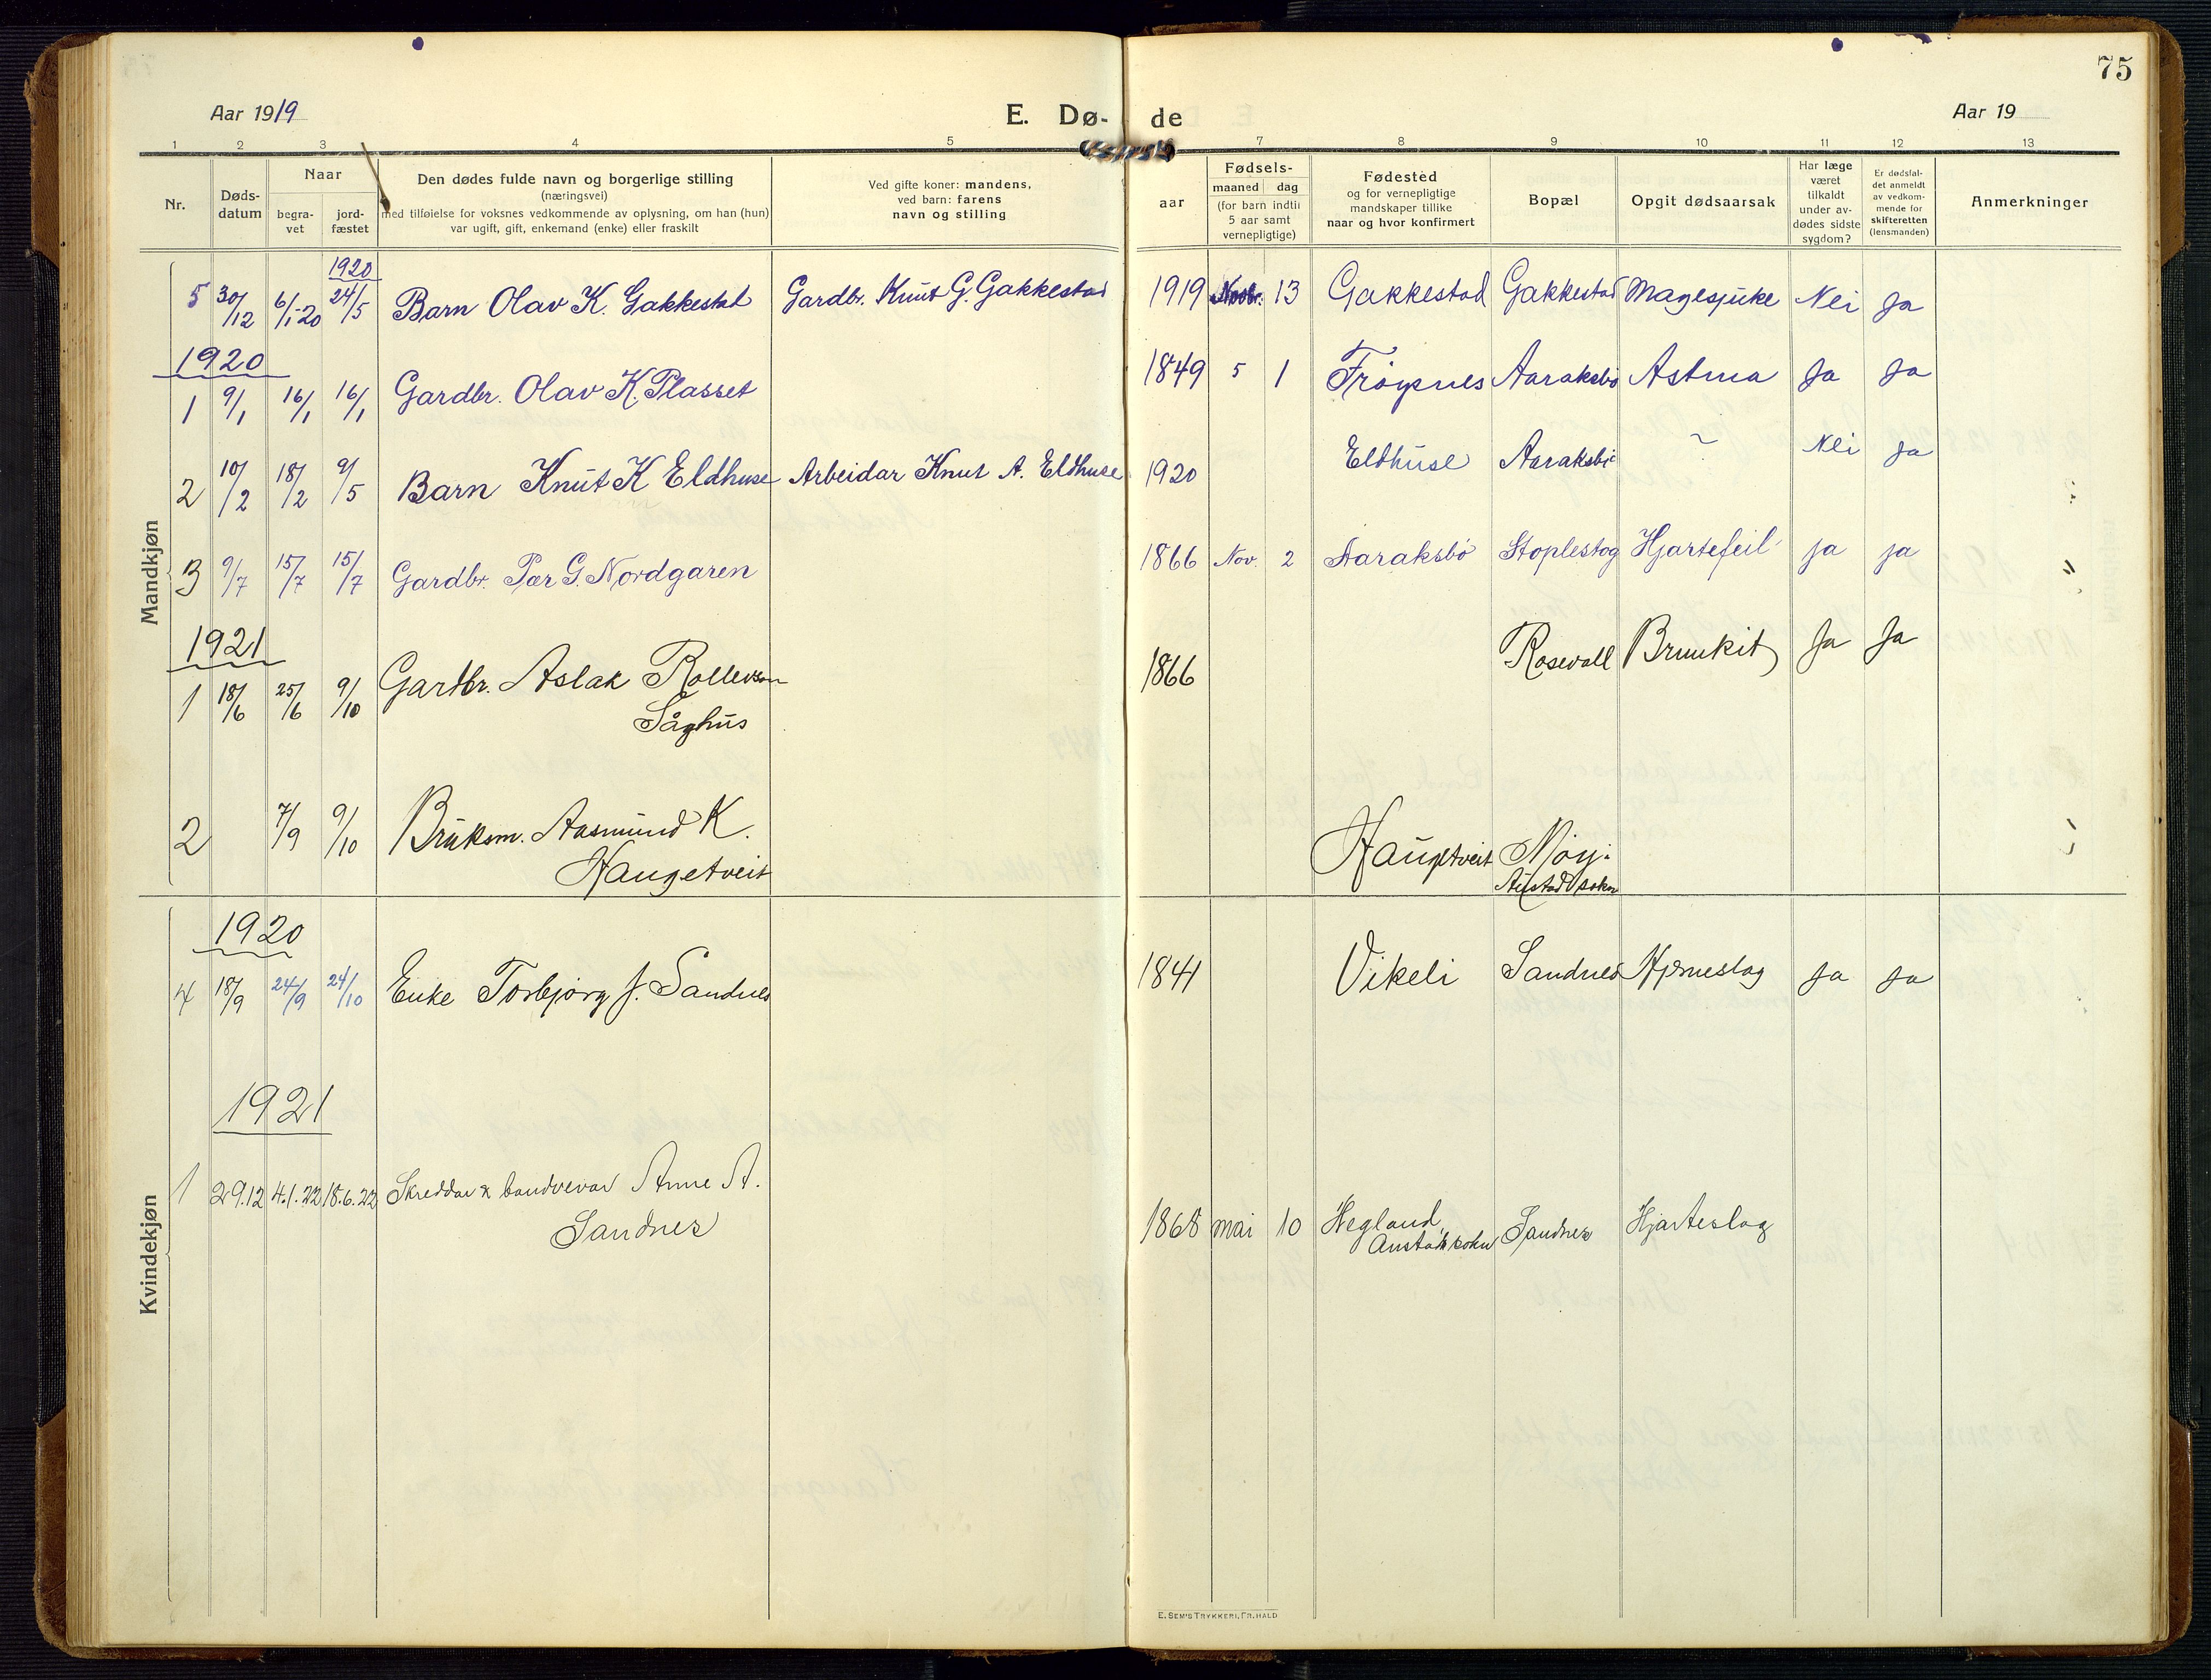 75
Aar 1919
E. Dø- de
Aar 19
1 2 3 4 5 7 8 9 10 11 12 13
Nr.
Døds-
datum
Naar
begra-
vet
jord-
fæstet
Den dødes fulde navn og borgerlige stilling
(næringsvei)
med tilføielse for voksnes vedkommende av oplysning, om han (hun)
var ugift, gift, enkemand (enke) eller fraskilt
Ved gifte koner: mandens,
ved barn: farens
navn og stilling
aar
Fødsels-
maaned dag
(for barn indtil
5 aar samt
vernepligtige)
Fødested
og for vernepligtige
mandskaper tillike
naar og hvor konfirmert
Bopæl
Opgit dødsaarsak
Har læge
været
tilkaldt
under av-
dødes sidste
sygdom?
Er dødsfal-
det anmeldt
av vedkom-
mende for
skifteretten
(lensmanden)
Anmerkninger
Mandkjøn
1920
5 30/12 6/1-20 24/5 Barn Olav K. Gakkestad Gardbr. Knut G. Gakkestad 1919 Novbr. 13 Gakkestad Gakkestad Magesjuke Nei Ja
1920
1 9/1 16/1 16/1 Gardbr. Olav K. Plasset 1849 5 1 Frøysnes Aaraksbø Astma Ja Ja
2 10/2 18/2 9/5 Barn Knut K Eldhuse Arbeidar Knut A. Eldhuse 1920 Eldhuse Aaraksbø ~ Nei Ja
3 9/7 15/7 15/7 Gardbr. Pær G. Nordgaren 1866 Nov. 2 Aaraksbø Stoplestog Hjartefeil ja ja
1921
1 18/6 25/6 9/10 Gardbr. Aslak Rollevson
Såghus
1866 Rosevoll Brunkit Ja Ja
2 7/9 9/10 Bruksm. Aasmund K.
Haugetveit
Haugetveit
Austad sokn
Kvindekjøn
1920
4 18/9 24/9 24/10 Enke Torbjørg J. Sandnes 1841 Vikeli Sandnes Hjerneslag Ja Ja
1921
1 29.12 4.1.22 18.6.22 Skreddar & bandvevar Anne A.
Sandnes
1868 mai 10 Hegland,
Austad sokn
Sandnes Hjarteslag
E. SEM'S TRYKKERI, FR.HALD